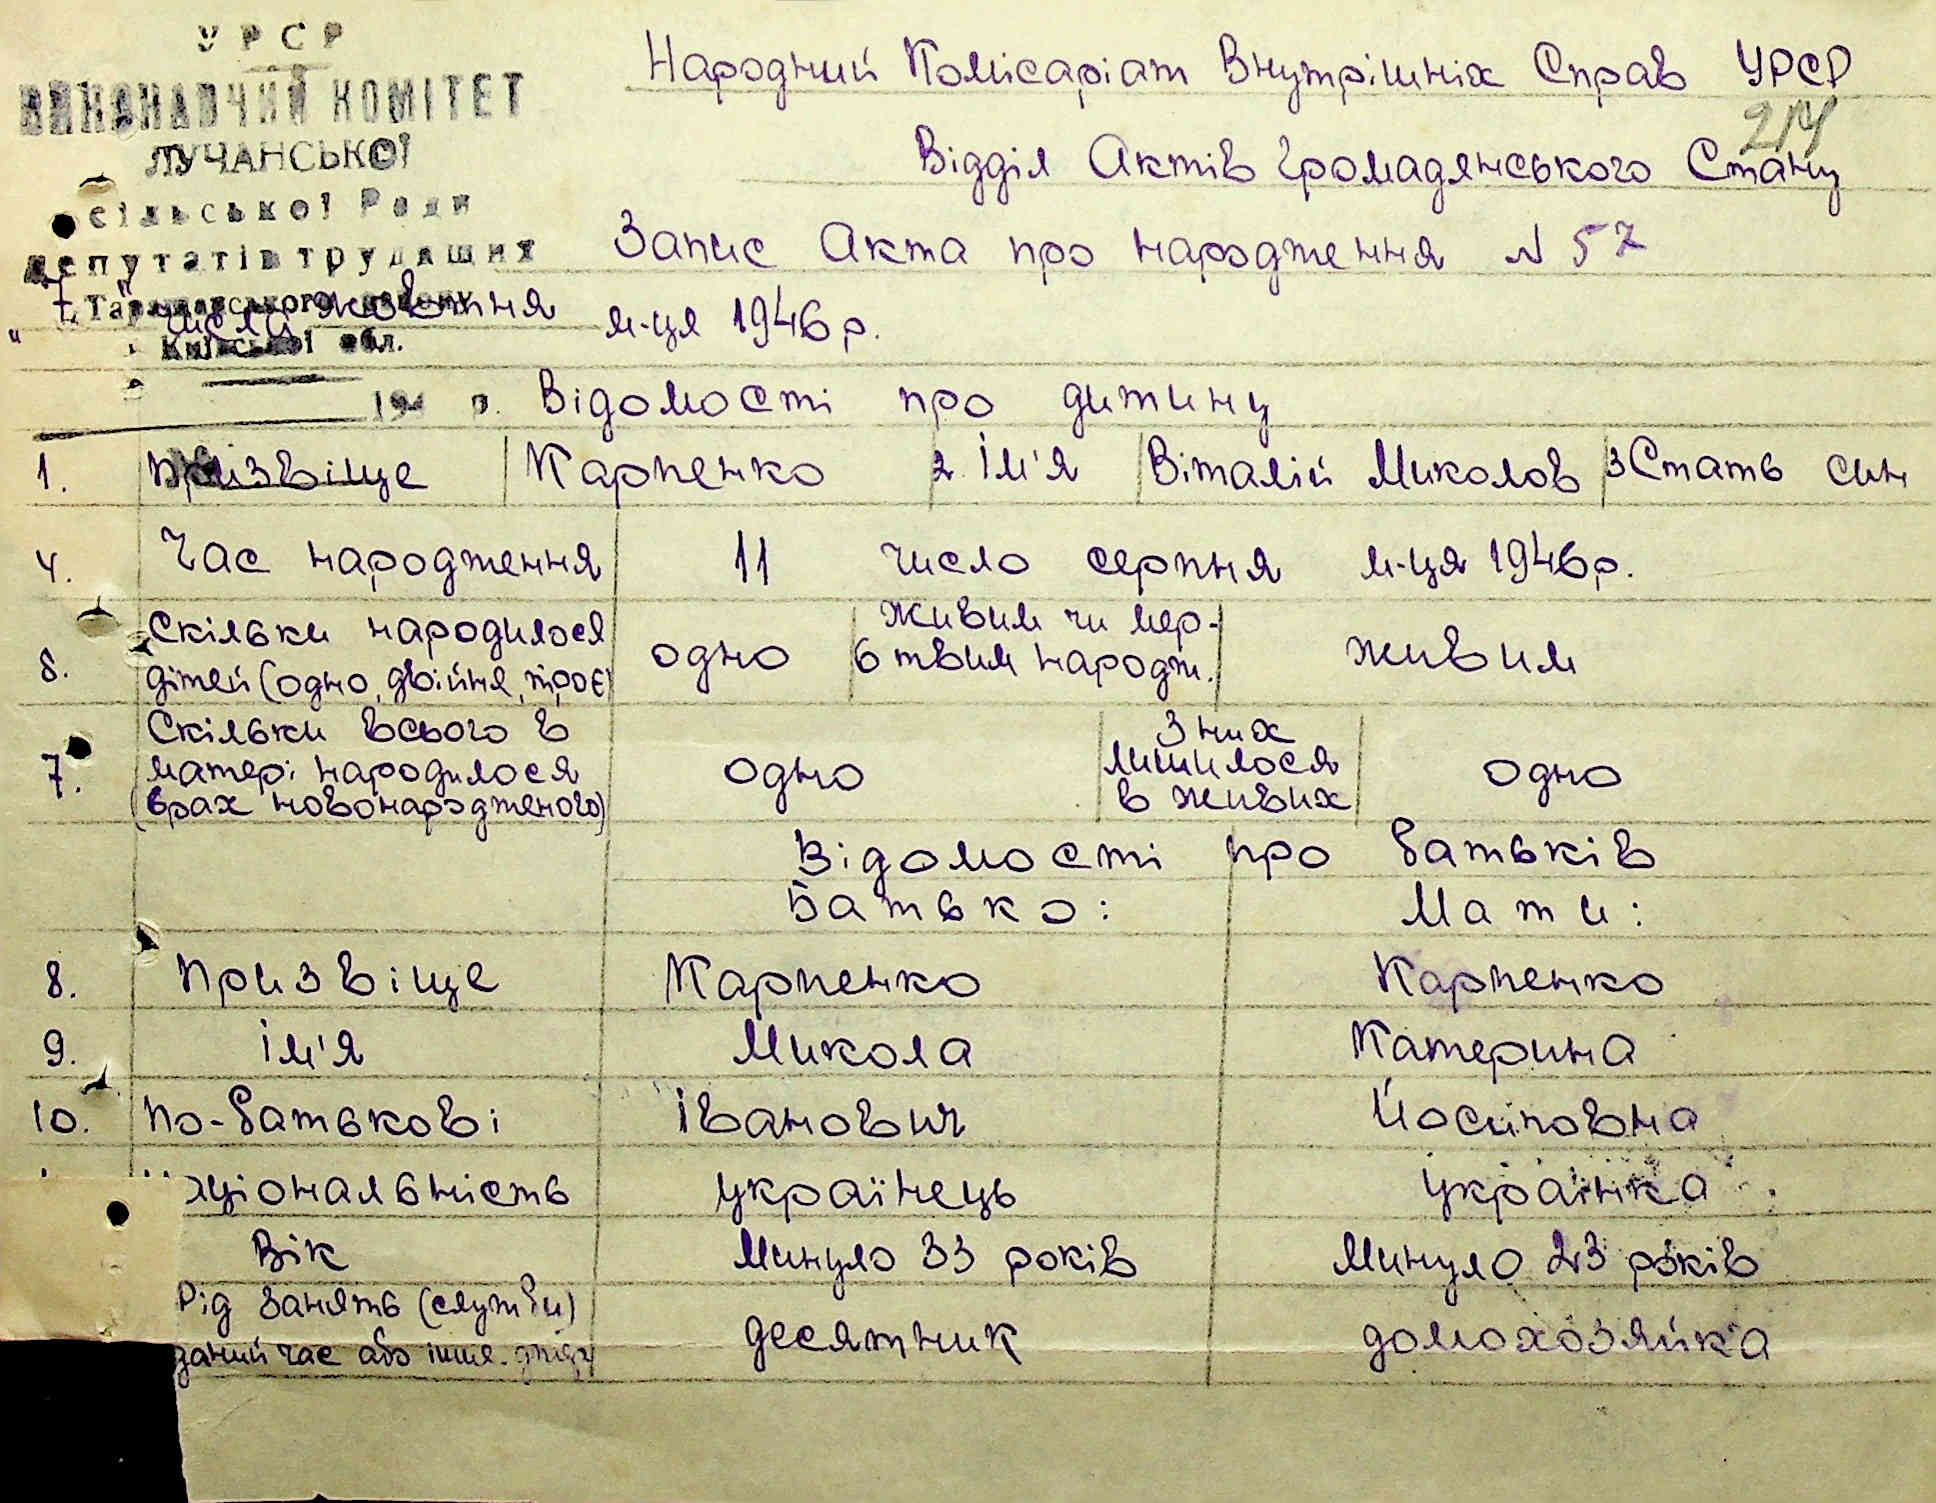 УРСР
ВИКОНАВЧИЙ КОМІТЕТ
ЛУЧАНСЬКОЇ
сільської Ради
депутатів трудящих
Таращанського району
Київської обл.
194 р.
Народний Комісаріат Внутрішніх Справ УРСР
214
Відділ Актів Громадянського Стану
Запис Акта про народження N 57
"7" числа жовтня м-ця 1946 р.
Відомості про дитину
1. Призвіще Карпенко 2. Ім'я Віталій Миколов 3 Стать син
4. Час народження 11 число серпня м-ця 1946 р.
5. Скільки народилося дітей (одно, двійня, троє) одно 6 живим чи мертвим народж. живим
7. Скільки всього в матері народилося (врах новонародженого) одно З них лишилося в живих одно
Відомості про батьків
Батько: Мати:
8. Призвіще Карпенко Карпенко
9. Ім'я Микола Катерина
10. По-батькові Іванович Йосиповна
аціональність українець українка
Вік Минуло 33 років Минуло 23 років
Рід занять (служби) десятник домохозяйка
даний час або інше